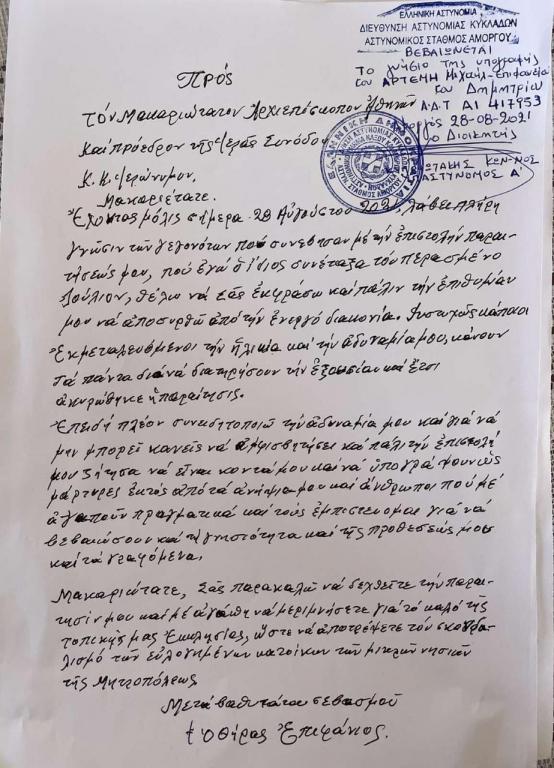 ΕΛΛΗΝΙΚΗ ΑΣΤΥΝΟΜΙΑ
ΔΙΕΥΘΥΝΣΗ ΑΣΤΥΝΟΜΙΑΣ ΚΥΚΛΑΔΩΝ
ΑΣΤΥΝΟΜΙΚΟΣ ΣΤΑΘΜΟΣ ΑΜΟΡΓΟΥ
ΒΕΒΑΙΩΝΕΤΑΙ
Το γνήσιο της υπογραφής
του ΑΡΤΕΜΗ Μιχαήλ-Επιφανείου
του Δημητρίου
Α.Δ.Τ ΑΙ 417953
28-08-2021
Ο Διοικητής
ΚΩΝ-ΝΟΣ
ΑΣΤΥΝΟΜΟΣ Α΄
Πρός
τόν Μακαριώτατον Ἀρχιεπίσκοπον Ἀθηνῶν
καί πρόεδρον τῆς Ἱερᾶς Συνόδου
Κ.Κ. Ἱερώνυμον.
Μακαριώτατε.
Ἔχοντας μόλις σήμερα 28 Αὐγούστου 2021 λάβει πλήρη
γνῶσιν τῶν γεγονότων πού συνέβησαν μέ τήν ἐπιστολήν παραι-
τήσεώς μου, πού ἐγώ ὁ ἴδιος συνέταξα τόν περασμένο
Ἰούλιον, θέλω νά Σᾶς ἐκφράσω καί πάλιν τήν ἐπιθυμίαν
μου νά ἀποσυρθῶ ἀπό τήν ἐνεργό διακονία. Δυστυχῶς κάποιοι
Ἐκμεταλευόμενοι τήν ἡλικία καί τήν ἀδυναμία μου, κάνουν
τά πάντα διά νά διατηρήσουν τήν ἐξουσίαν καί ἔτσι
ἀκυρώθηκε ἡ παραίτησις.
Ἐπειδή πλέον συνειδητοποιῶ τήν ἀδυναμία μου καί γιά νά
μην μπορεῖ κανείς νά ἀμφισβητήσει καί πάλι τήν ἐπιστολή
μου ζήτησα νά εἶναι κοντά μου καί νά ὑπογράψουν ὡς
μάρτυρες ἐκτός ἀπό τά ἀνήψια μου καί ἄνθρωποι πού μέ
ἀγαποῦν πραγματικά καί τούς ἐμπιστεύομαι γιά νά
βεβαιώσουν καί τή γνησιότητα καί τῆς προθέσεώς μου
καί τά γραφόμενα.
Μακαριώτατε, Σᾶς παρακαλῶ νά δεχθεῖτε τήν παραί-
τησίν μου καί μέ ἀγάπη νά μεριμνήσετε γιά τό καλό τῆς
τοπικῆς μας Ἐκκλησίας, ὥστε νά ἀποτρέψετε τόν σκανδα-
λισμό τῶν εὐλογημένων κατοίκων τῶν μικρῶν νησιῶν
τῆς Μητροπόλεως
Μετά βαθυτάτου σεβασμοῦ
† ὁ Θήρας Ἐπιφάνιος.